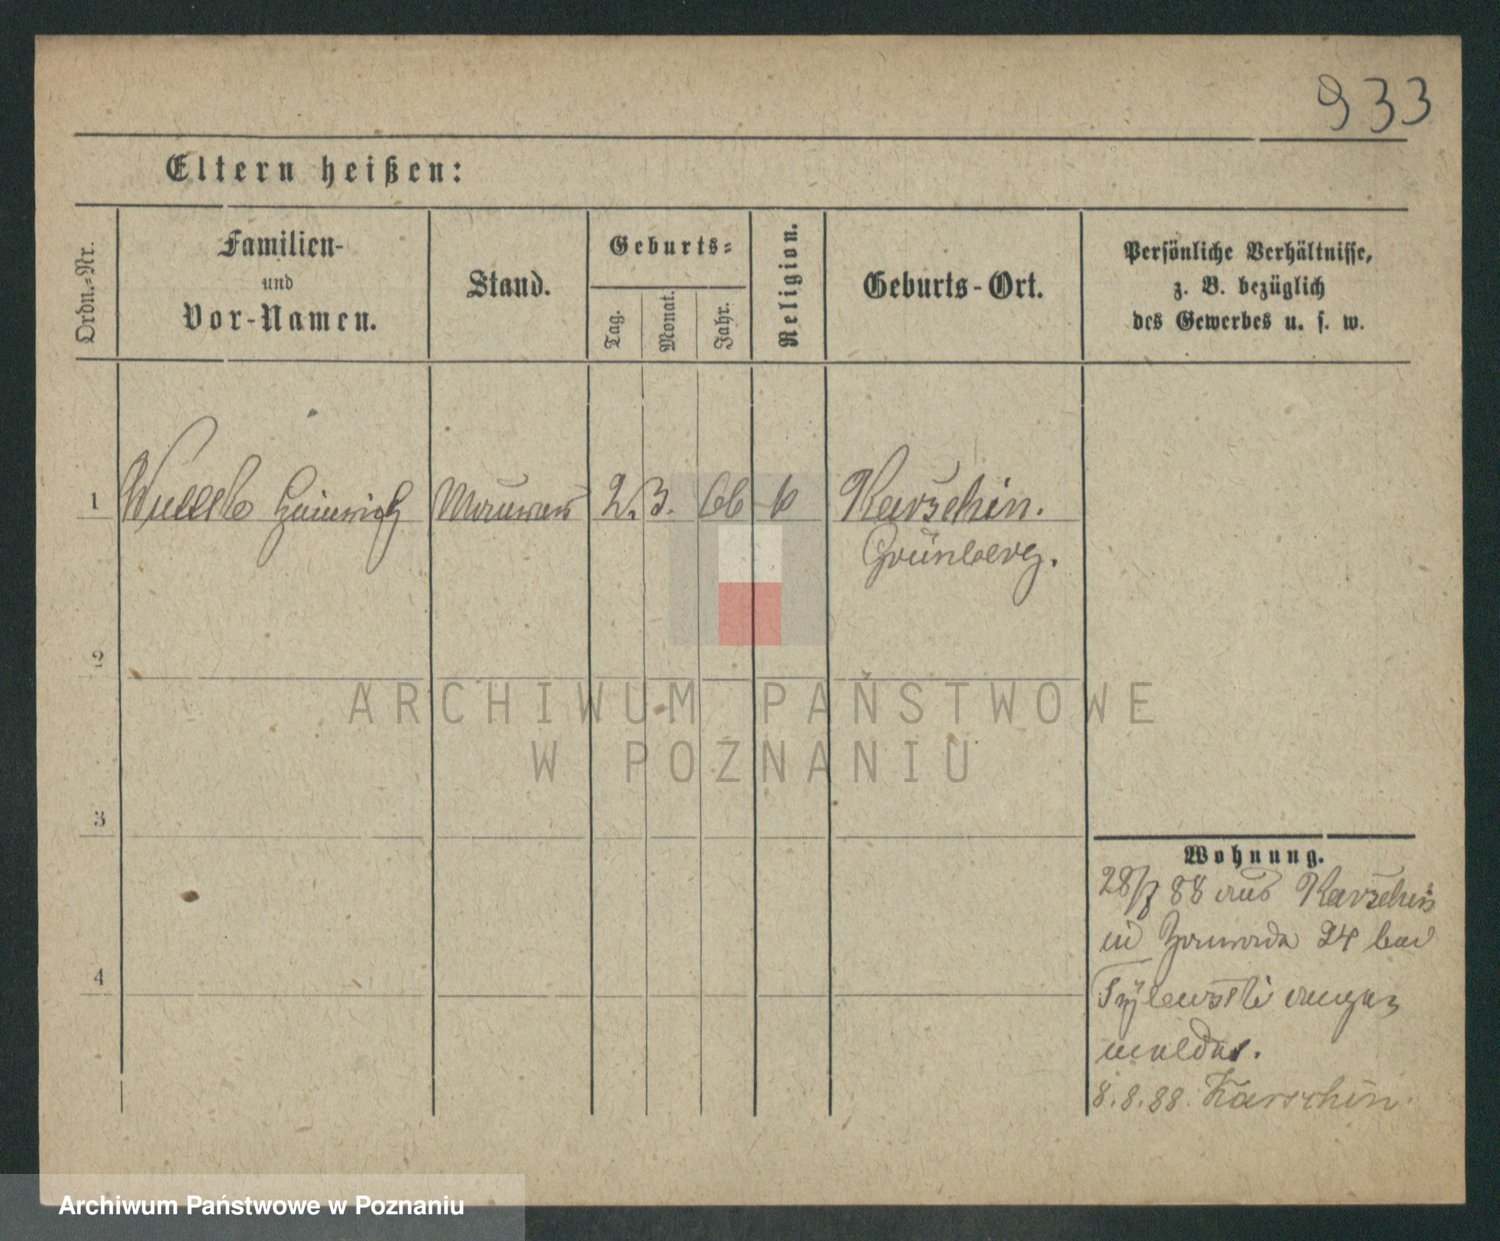 933
Eltern heißen:
Ordn.-Nr.
Familien-
und
Vor-Namen.
Stand.
Geburts-
Tag.
Monat.
Jahr.
Religion.
Geburts-Ort.
Persönliche Verhältnisse,
z. B. bezüglich
des Gewerbes u. s. w.
1 Heinrich Maurer 2. 3. 66 k Karschin.
Grünberg.
2
3
4
Wohnung.
28/7 88 aus Karschin
in 24 bei
ange
meldet.
8.8.88. Karschin.
ARCHIWUM PAŃSTWOWE
W POZNANIU
Archiwum Państwowe w Poznaniu